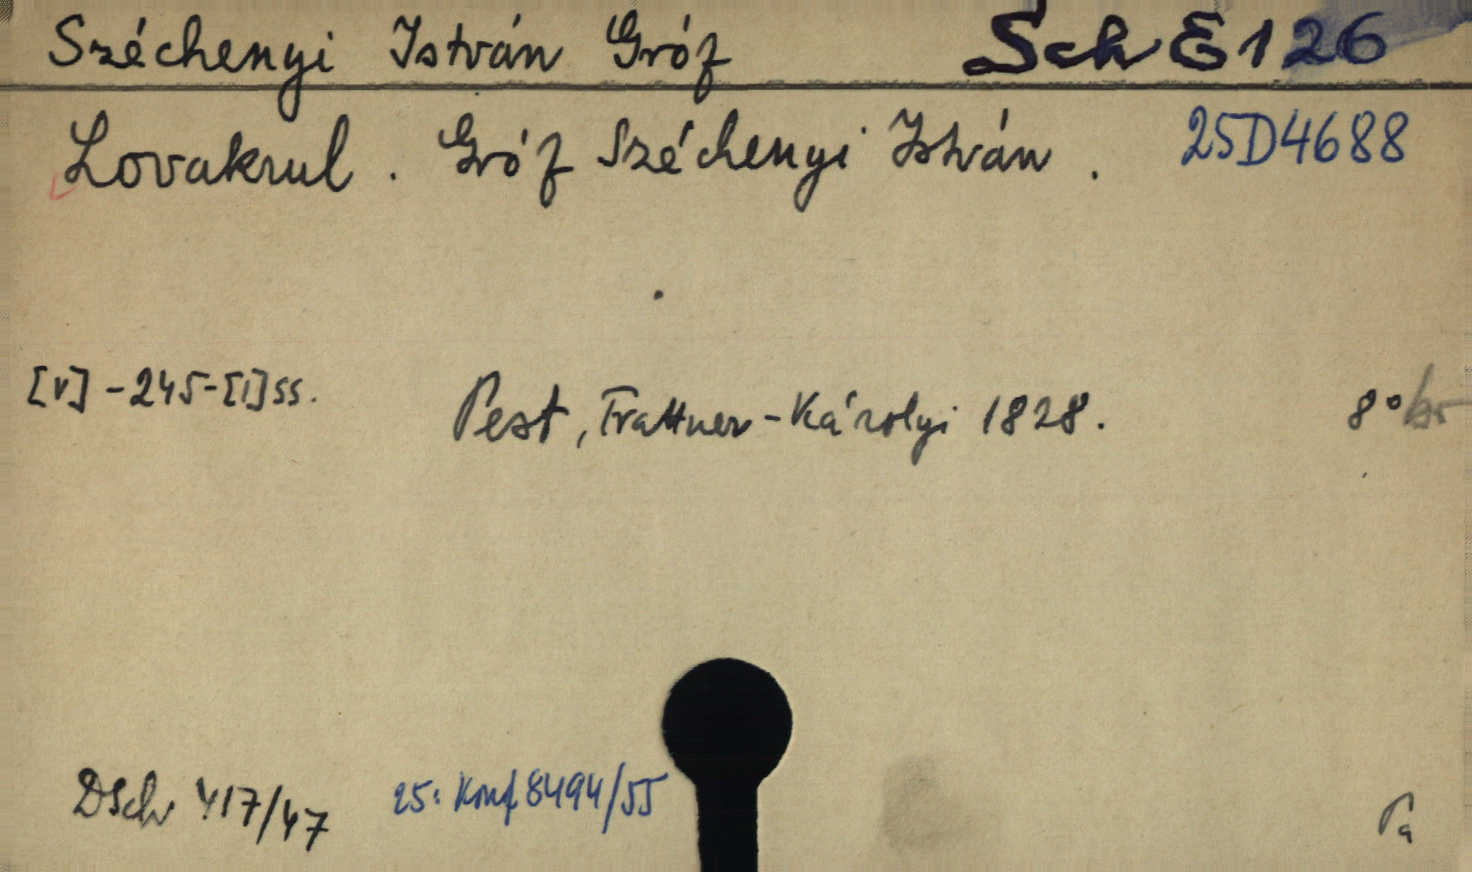 Széchenyi István Gróf Sch E 126
Lovakrul. Gróf Széchenyi István. 25D4688
[V] - 245 - [1] ss. Pest, Trattner-Károlyi 1828. 8° br
DSchr 417/47 25: Konf 8494/55 Pa